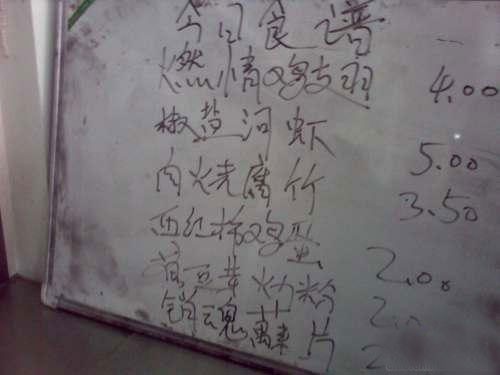 今日食谱
燃情鸡翅 4.00
椒盐河虾 5.00
肉烧腐竹 3.50
西红柿鸡蛋 2.00
黄豆芽炒粉 2.00
销魂藕片 2